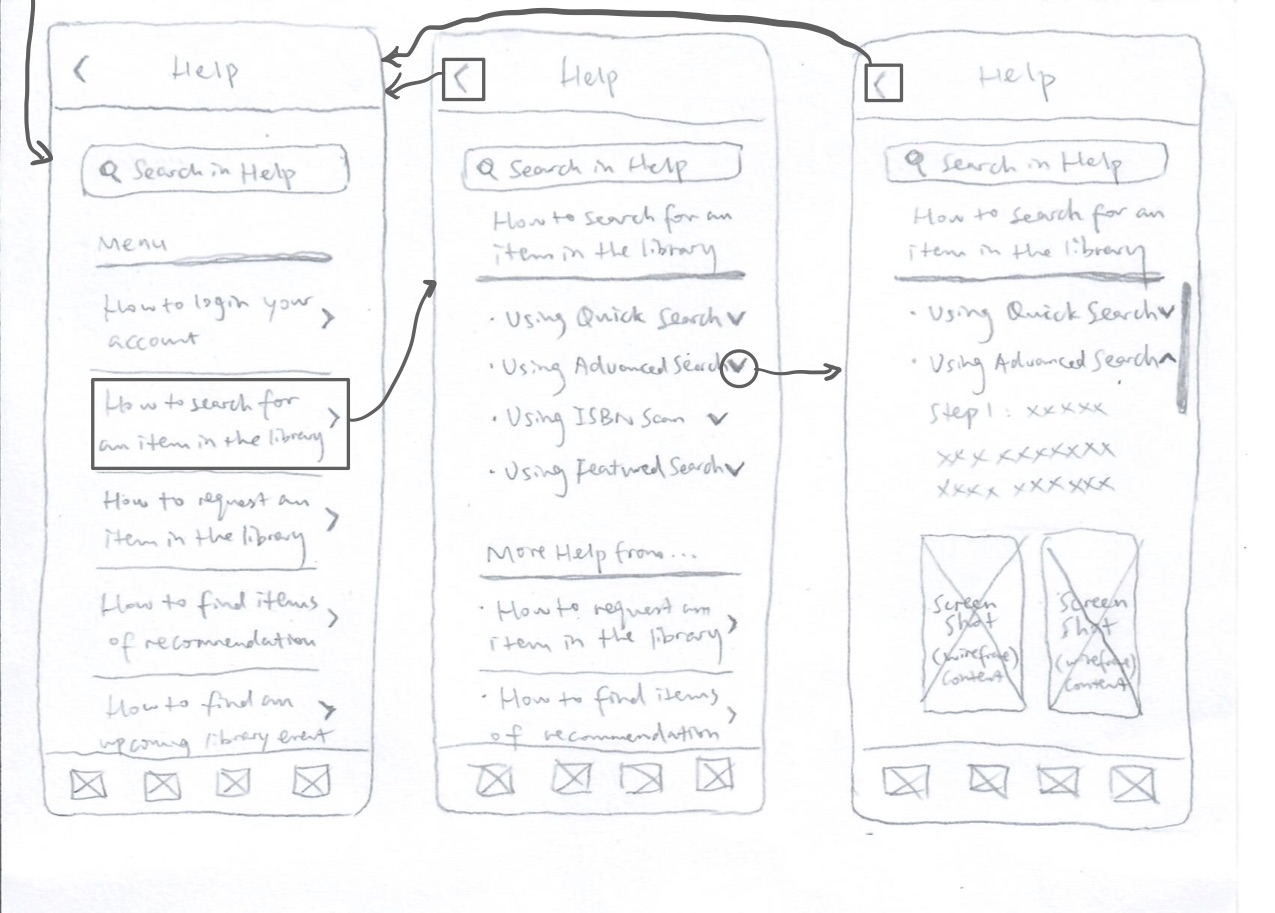 Help
Search in Help
Menu
How to login your
account
How to search for
an item in the library
How to request an
item in the library
How to find items
of recommendation
How to find an
upcoming library event
Help
Search in Help
How to search for an
item in the library
· Using Quick Search
· Using Advanced Search
· Using ISBN Scan
· Using Featured Search
More Help from...
· How to request an
item in the library
· How to find items
of recommendation
Help
Search in Help
How to search for an
item in the library
· Using Quick Search
· Using Advanced Search
Step 1: xxxxx
xxx xxxxxxxx
xxxx xxxxxx
Screen
Shot
(wireframe)
content
Screen
Shot
(wireframe)
content